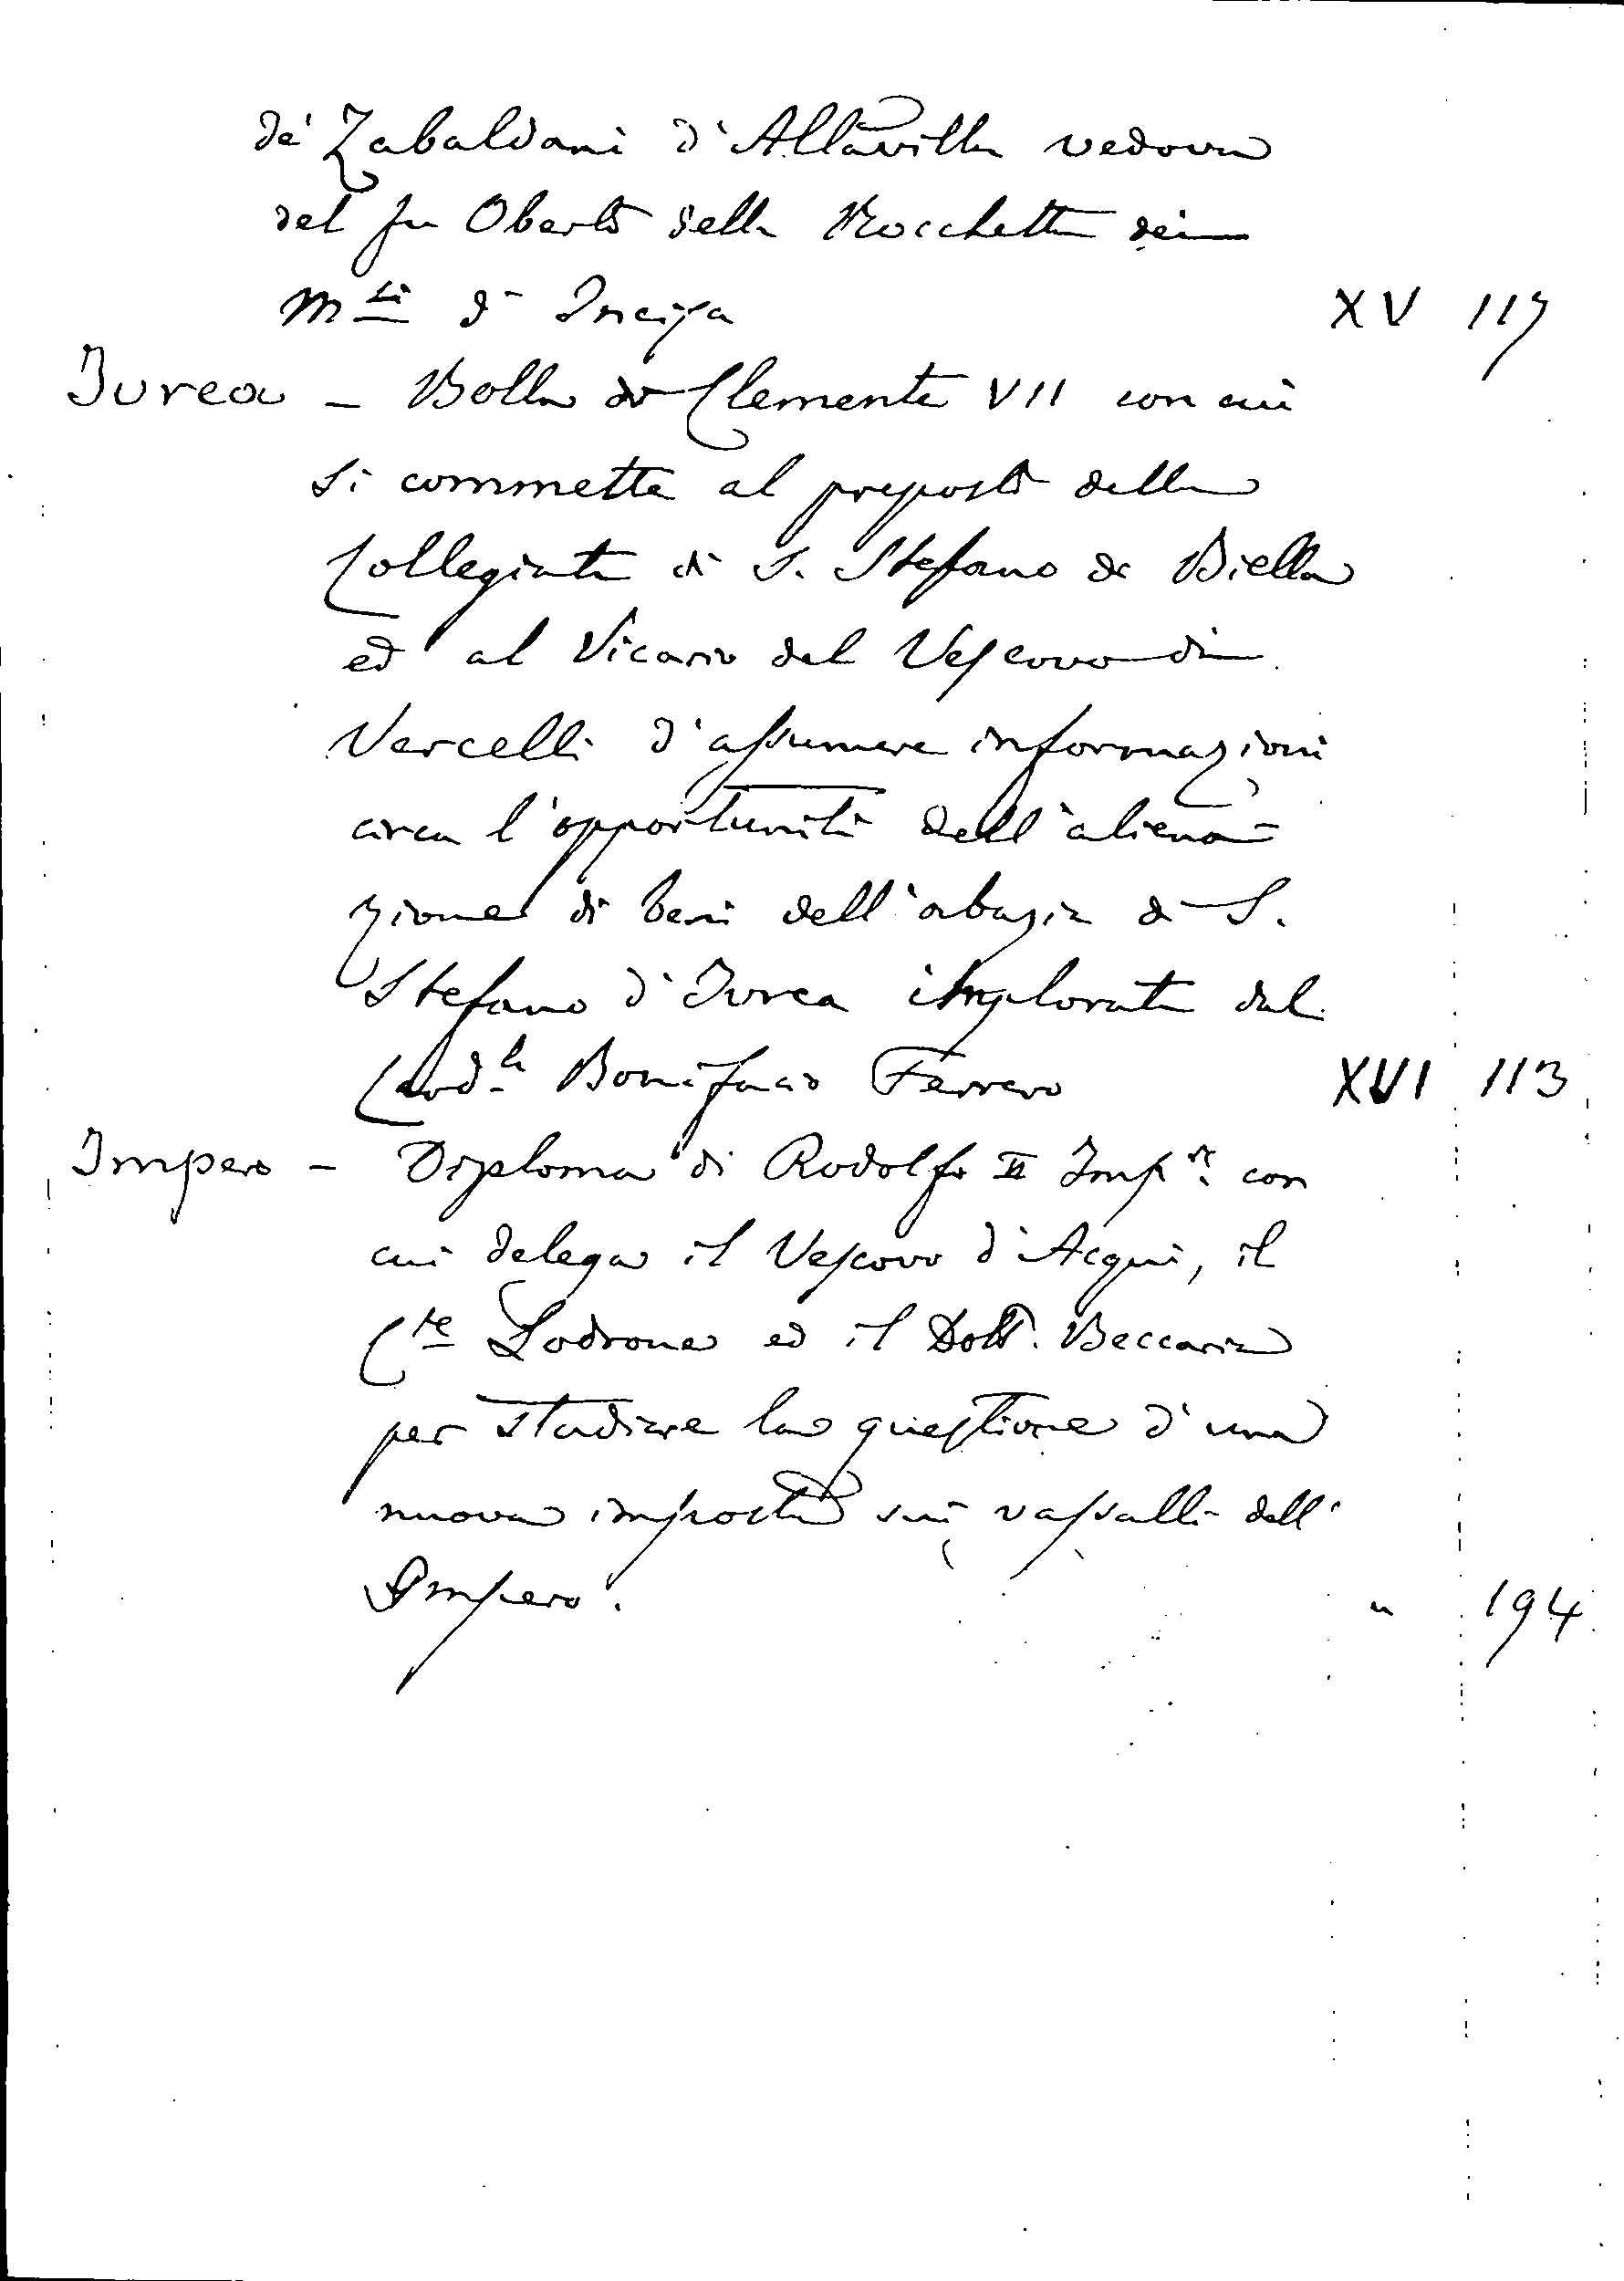 de' Zabaldani d'Altavilla vedova
del fu Oberto della Rocchetta dei
M.ti d'Incisa XV 117
Ivrea - Bolla di Clemente VII con cui
si commette al preposto della
Collegiata di S. Stefano di Biella
ed al Vicario del Vescovo di
Vercelli d'assumere informazioni
circa l'opportunità dell'aliena-
zione di beni dell'abazia di S.
Stefano d'Ivrea implorata dal
Card.le Bonifacio Ferrero XVI 113
Impero - Diploma di Rodolfo II Imp.re con
cui delega il Vescovo d'Acqui, il
C.te Lodrone ed il Dott. Beccaria
per studiare la questione d'una
nuova imposta sui vassalli dell'
Impero. " 194